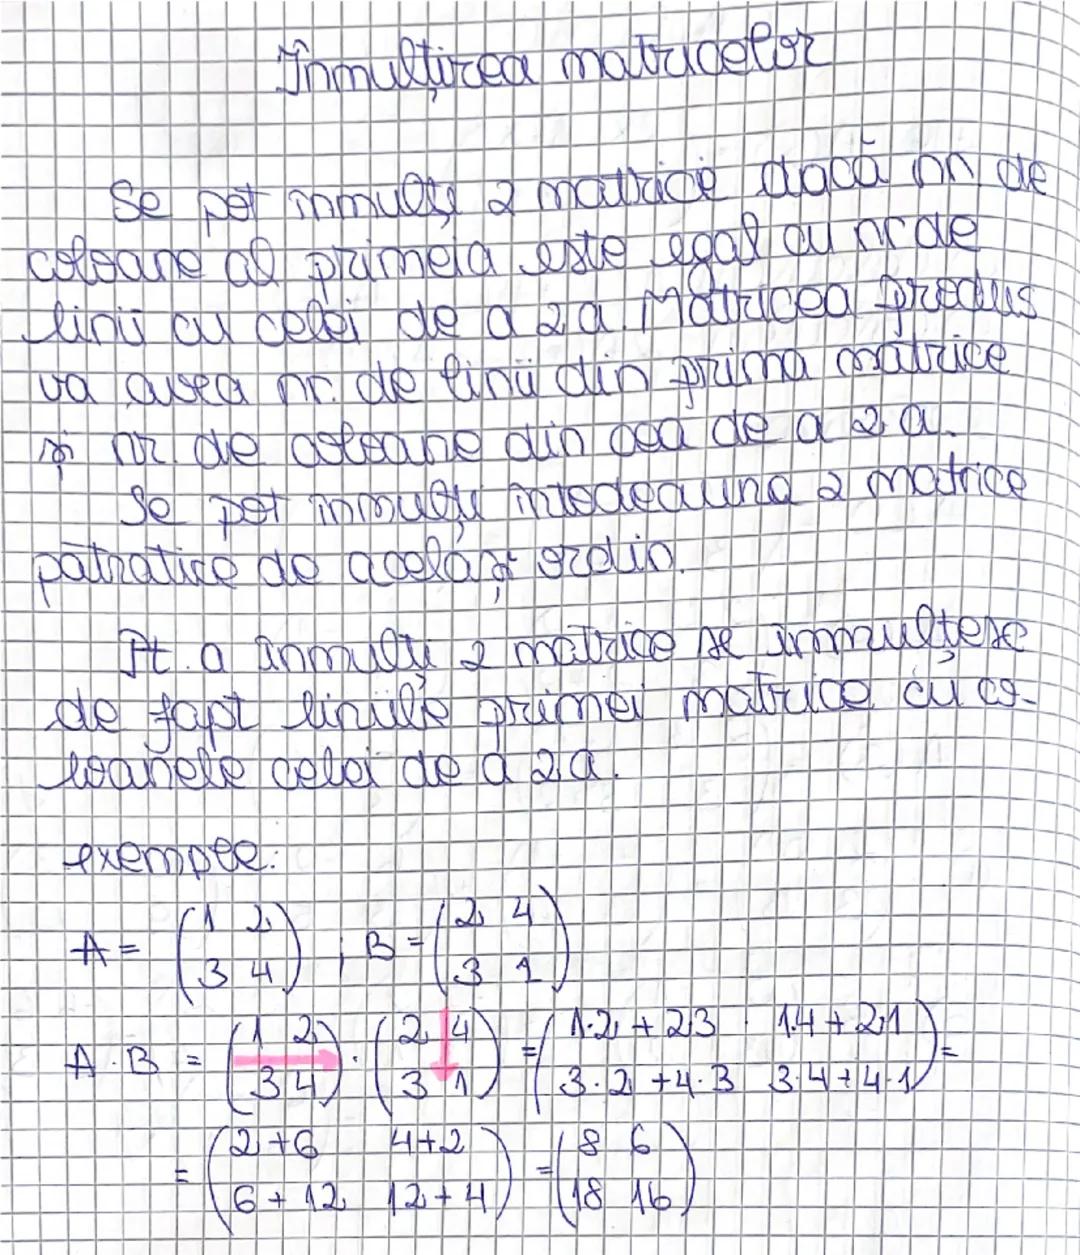 Înmulțirea matricelor
Se pot inmulți 2 matrice dacă nr de
coloane al primeia este egal cu nr de
linii cu celei de a 2a. Matricea produs
va avea nr. de linii din prima matrice
și nr. de coloane din cea de a 2 a.
Se pot inmulți intodeauna 2 matrice
pătratice de același ordin.
Pt. a inmulți 2 matrice se inmulțesc
de fapt liniile primei matrice cu co-
loanele celei de a 2a.
exemple:
A = (1 2 ; B = (2 4
3 4) 3 1)
A · B = (1 2) · (2 4) = (1·2 + 2·3 1·4 + 2·1) =
(3 4) (3 1) (3·2 + 4·3 3·4 + 4·1)
= (2+6 4+2) = (8 6)
(6+12 12+4) (18 16)